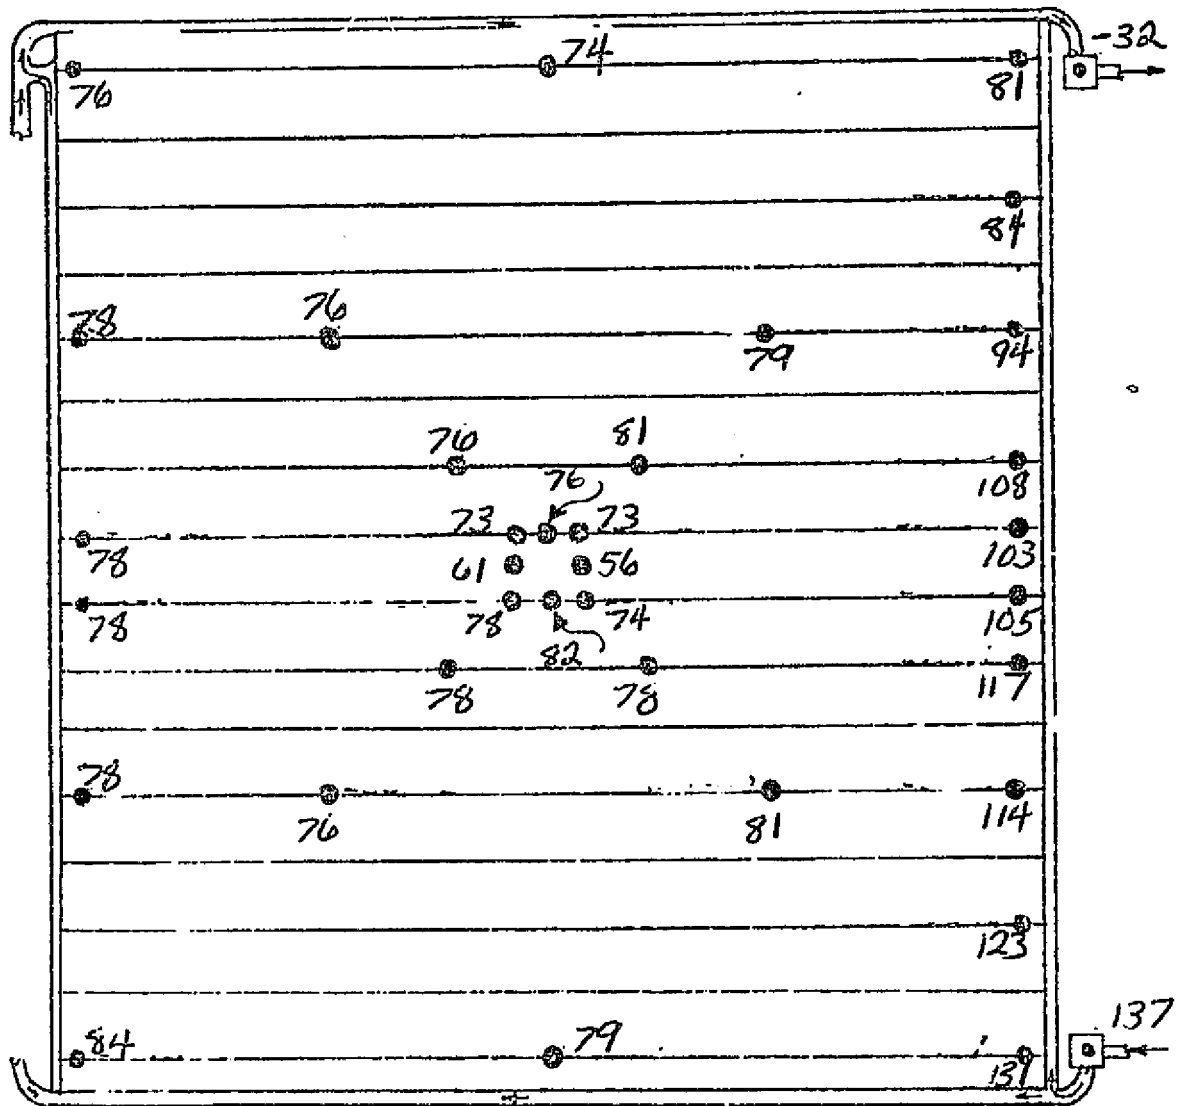 74
-32
76
81
84
78
76
79
94
76
81
108
76
73
73
78
103
61
56
78
78
74
105
82
78
78
117
78
76
81
114
123
137
84
79
131